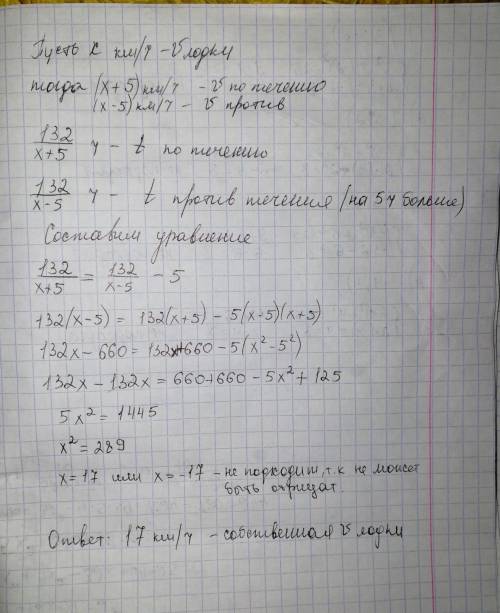 Пусть x км/ч - v лодки
тогда (x+5) км/ч - v по течению
(x-5) км/ч - v против
132/(x+5) ч - t по течению
132/(x-5) ч - t против течения (на 5ч больше)
Составим уравнение
132/(x+5) = 132/(x-5) - 5
132(x-5) = 132(x+5) - 5(x-5)(x+5)
132x - 660 = 132x+660 - 5(x²-5²)
132x - 132x = 660+660 - 5x² + 125
5x² = 1445
x² = 289
x=17 или x=-17 - не подходит, т.к не может
быть отрицат.
Ответ: 17 км/ч - собственная v лодки